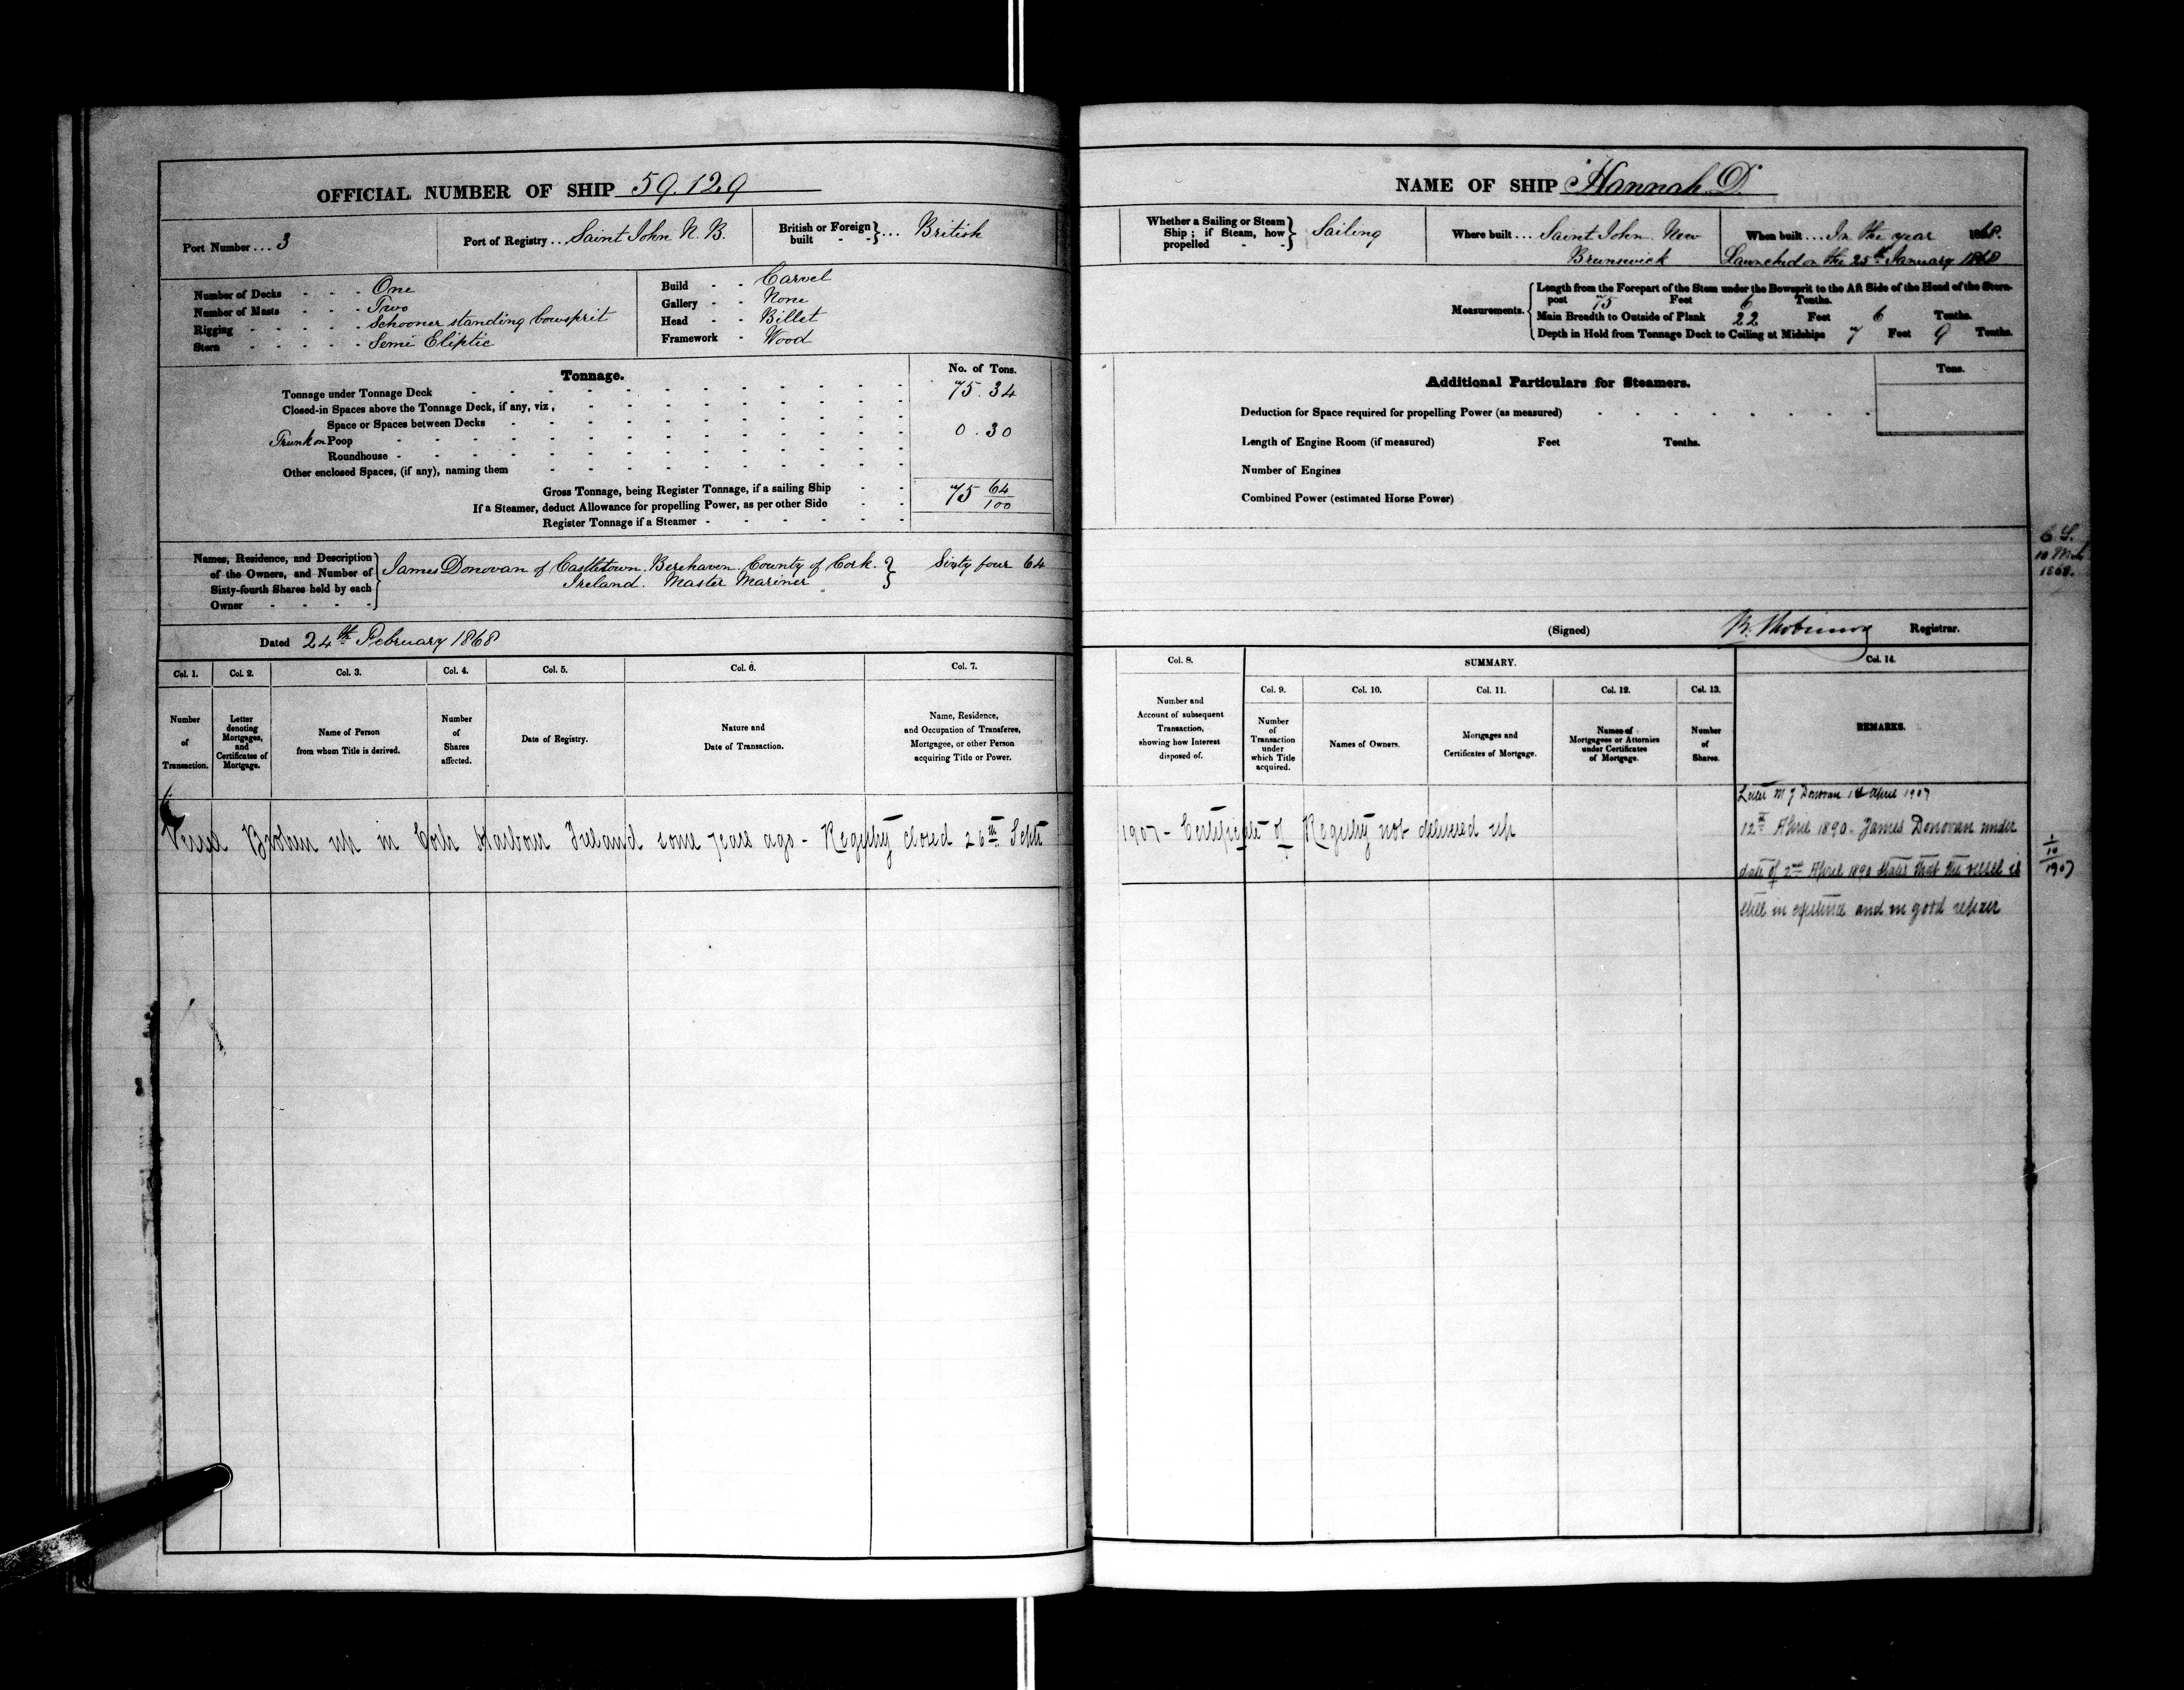 OFFICIAL NUMBER OF SHIP 59.129
Port Number ... 3
Port of Registry ... Saint John N. B.
British or Foreign built - - } ... British
Number of Decks - - - One
Number of Masts - - - Two
Rigging - - - - - Schooner standing bowsprit
Stern - - - - - Semi Eliptic
Build - - Carvel
Gallery - - None
Head - - Billet
Framework - Wood
Tonnage.
No. of Tons.
Tonnage under Tonnage Deck 75.34
Closed-in Spaces above the Tonnage Deck, if any, viz.,
Space or Spaces between Decks
Trunk on Poop 0.30
Roundhouse
Other enclosed Spaces, (if any), naming them
Gross Tonnage, being Register Tonnage, if a sailing Ship 75 64/100
If a Steamer, deduct Allowance for propelling Power, as per other Side
Register Tonnage if a Steamer
Names, Residence, and Description
of the Owners, and Number of
Sixty-fourth Shares held by each
Owner - - - -
James Donovan of Castletown Berehaven County of Cork. } Sixty four 64
Ireland. Master Mariner
Dated 24th February 1868
Col. 1. Col. 2. Col. 3. Col. 4. Col. 5. Col. 6. Col. 7.
Number of Transaction.
Letter denoting Mortgages, and Certificates of Mortgage.
Name of Person from whom Title is derived.
Number of Shares affected.
Date of Registry.
Nature and Date of Transaction.
Name, Residence, and Occupation of Transferee, Mortgagee, or other Person acquiring Title or Power.
Vessel Broken up in Cork Harbour Ireland some years ago - Registry closed 26th Septr
NAME OF SHIP "Hannah D."
Whether a Sailing or Steam Ship; if Steam, how propelled - - } Sailing
Where built ... Saint John New
Brunswick
When built ... In the year 1868.
Launched on the 25th January 1868
Measurements.
Length from the Forepart of the Stem under the Bowsprit to the Aft Side of the Head of the Stern-
post 75 Feet 6 Tenths.
Main Breadth to Outside of Plank 22 Feet 6 Tenths.
Depth in Hold from Tonnage Deck to Ceiling at Midships 7 Feet 9 Tenths.
Additional Particulars for Steamers.
Tons.
Deduction for Space required for propelling Power (as measured)
Length of Engine Room (if measured) Feet Tenths.
Number of Engines
Combined Power (estimated Horse Power)
1868.
(Signed) Registrar.
Col. 8. SUMMARY. Col. 14.
Col. 9. Col. 10. Col. 11. Col. 12. Col. 13.
Number and Account of subsequent Transaction, showing how Interest disposed of.
Number of Transaction under which Title acquired.
Names of Owners.
Mortgages and Certificates of Mortgage.
Names of Mortgagees or Attornies under Certificates of Mortgage.
Number of Shares.
REMARKS.
1907 - Certificate of Registry not delivered up
Letter M J Donovan April 1907
12th April 1890. James Donovan under
date of 2nd April 1890 states that the vessel is
still in existence and in good repair
1/10
1907